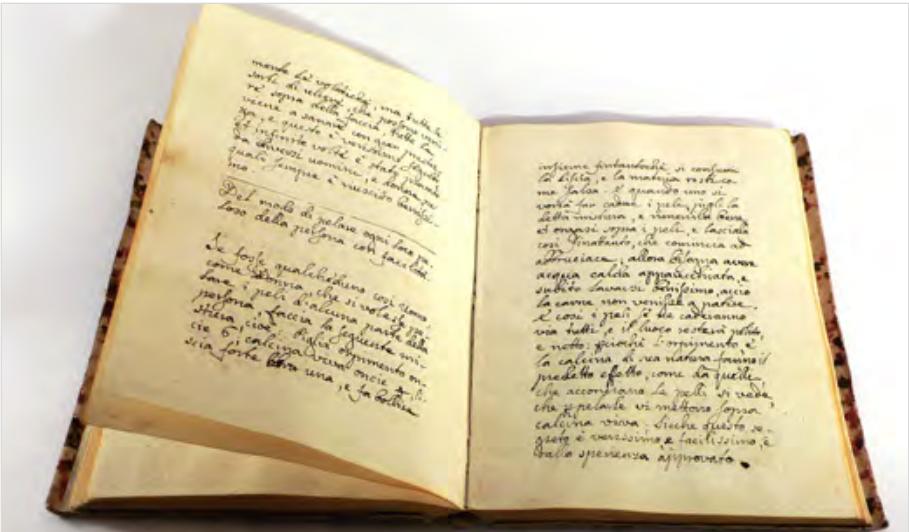 mente le volatiche, ma tutte le
sorti di che possono veni-
re sopra della faccia, tutte le
viene a sanare con gran prestez-
za, e questo è verissimo
et infinite volte è stato
da diversi uomini, e donne, ne'
quali sempre è riuscito benissi-
mo.
Del modo di pelare ogni loco pi-
loso della persona con facilità.
Se fosse qualcheduno così uomo,
come donna, che si volesse
lare i peli d'alcuna parte della
persona, faccia la seguente mi-
stura, cioè: Piglia orpimento on-
cie 6, calcina viva oncie li-
scia forte libra una, e fa bollire
insieme fintantoché si consumi
la lisia, e la materia resti co-
me salsa. E quando uno si
vorrà far cadere i peli, pigli la
detta mistura, e bene,
et ongasi sopra i peli, e lasciala
così che comincia ad
abbruciare; allora bisogna avere
acqua calda apparecchiata, e
subito lavarsi benissimo, acciò
la carne non venisse a patire.
E così i peli se ne caderanno
via tutti, e il luoco resterà polito,
e netto: perché l'orpimento e
la calcina di sua natura fanno il
predetto effetto, come da quelli,
che acconciano le pelli si vede,
che p pelarle vi mettono sopra
calcina viva. Sicche questo se-
greto è verissimo e facilissimo, e
dalla sperienza approvato.